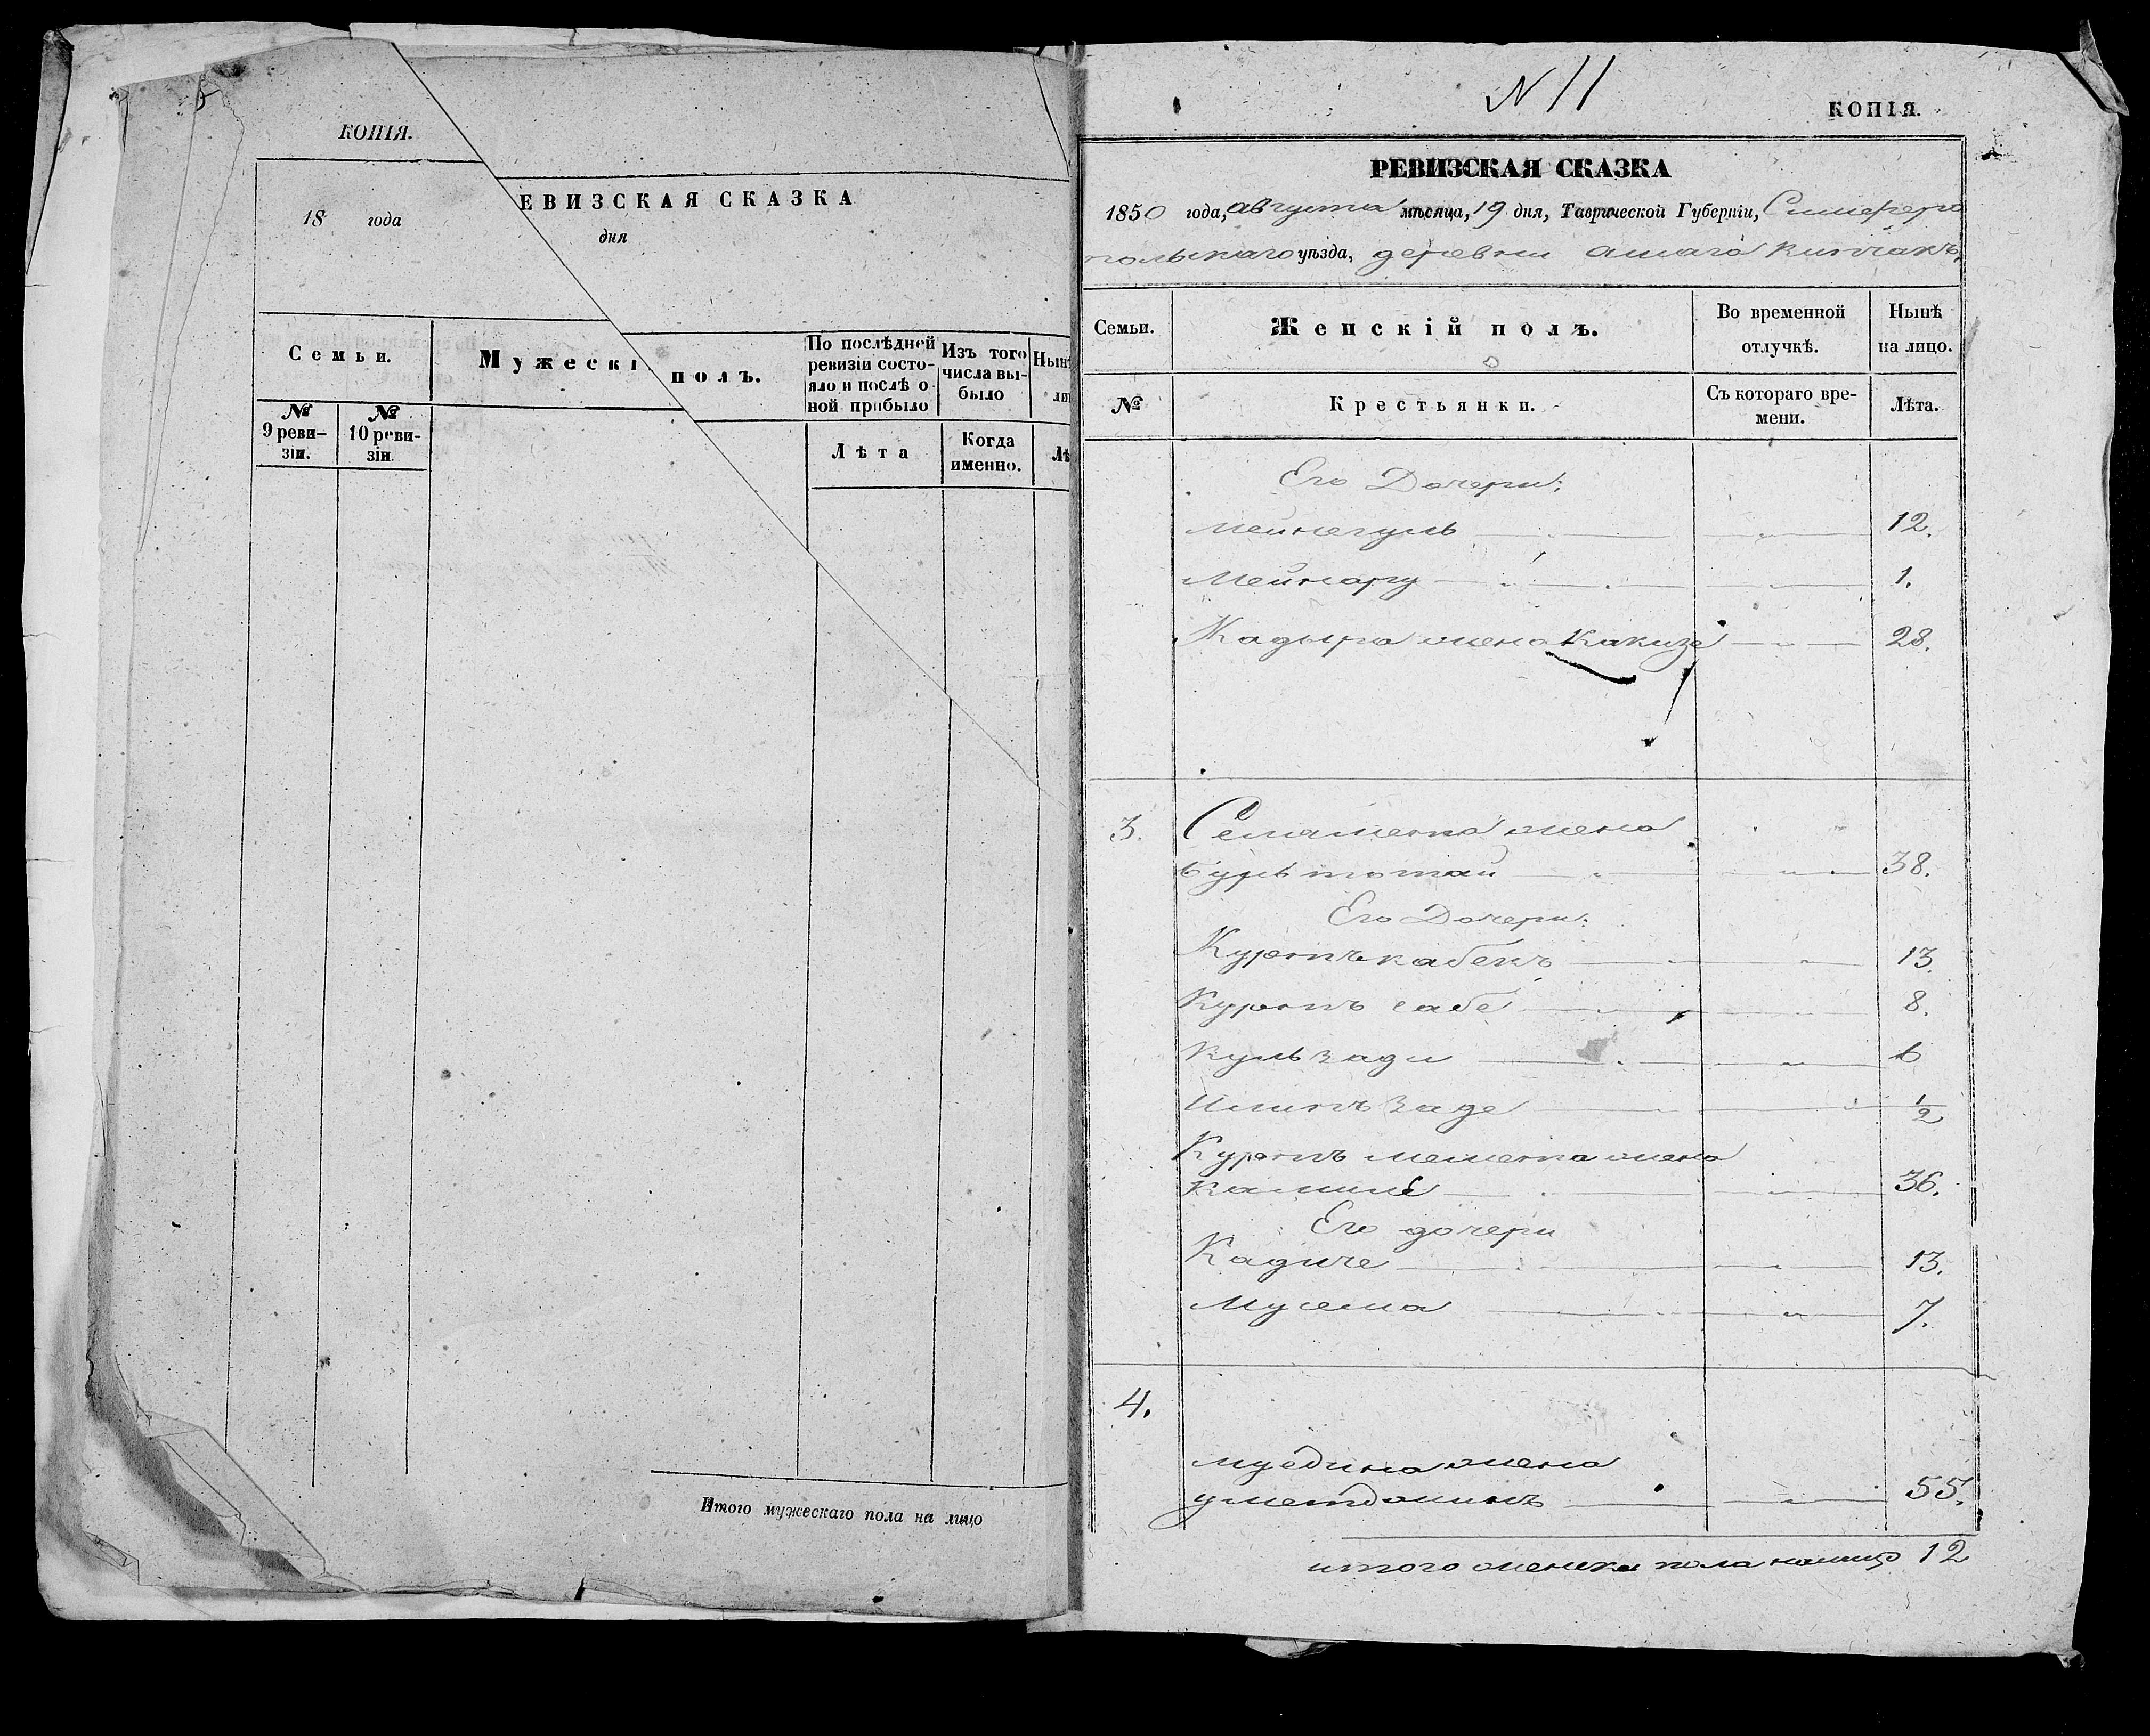 КОПІЯ.
ЕВИЗСКАЯ СКАЗКА
18 года
дня
Семьи.
Мужескі
полъ.
По послѣдней ревизіи состояло и послѣ оной прибыло
Изъ того числа выбыло
Нын
ли
№ 9 ревизіи.
№ 10 ревизіи
Лѣта
Когда именно.
Лѣ
Итого мужескаго пола на лицо
N 11
КОПІЯ.
РЕВИЗСКАЯ СКАЗКА
1850 года, августа мѣсяца, 19 дня, Таврической Губерніи, Симферо
польскаго уѣзда, деревни ашага кипчакъ,
Семьи.
Женскій полъ.
Во временной отлучкѣ.
Нынѣ на лицо.
№
Крестьянки.
Съ котораго времени.
Лѣта.
Его Дочери:
мейнегуль 12.
Мейнару 1.
Кадыра жена Какизе 28.
3. Сеитмемета жена
38.
Его Дочери:
13.
8.
Кульзади 6
1/2
Куртъ мемета жена
36.
Его дочери
Кадиче 13.
7.
4.
муедина жена
55.
итого женска пола налицо 12